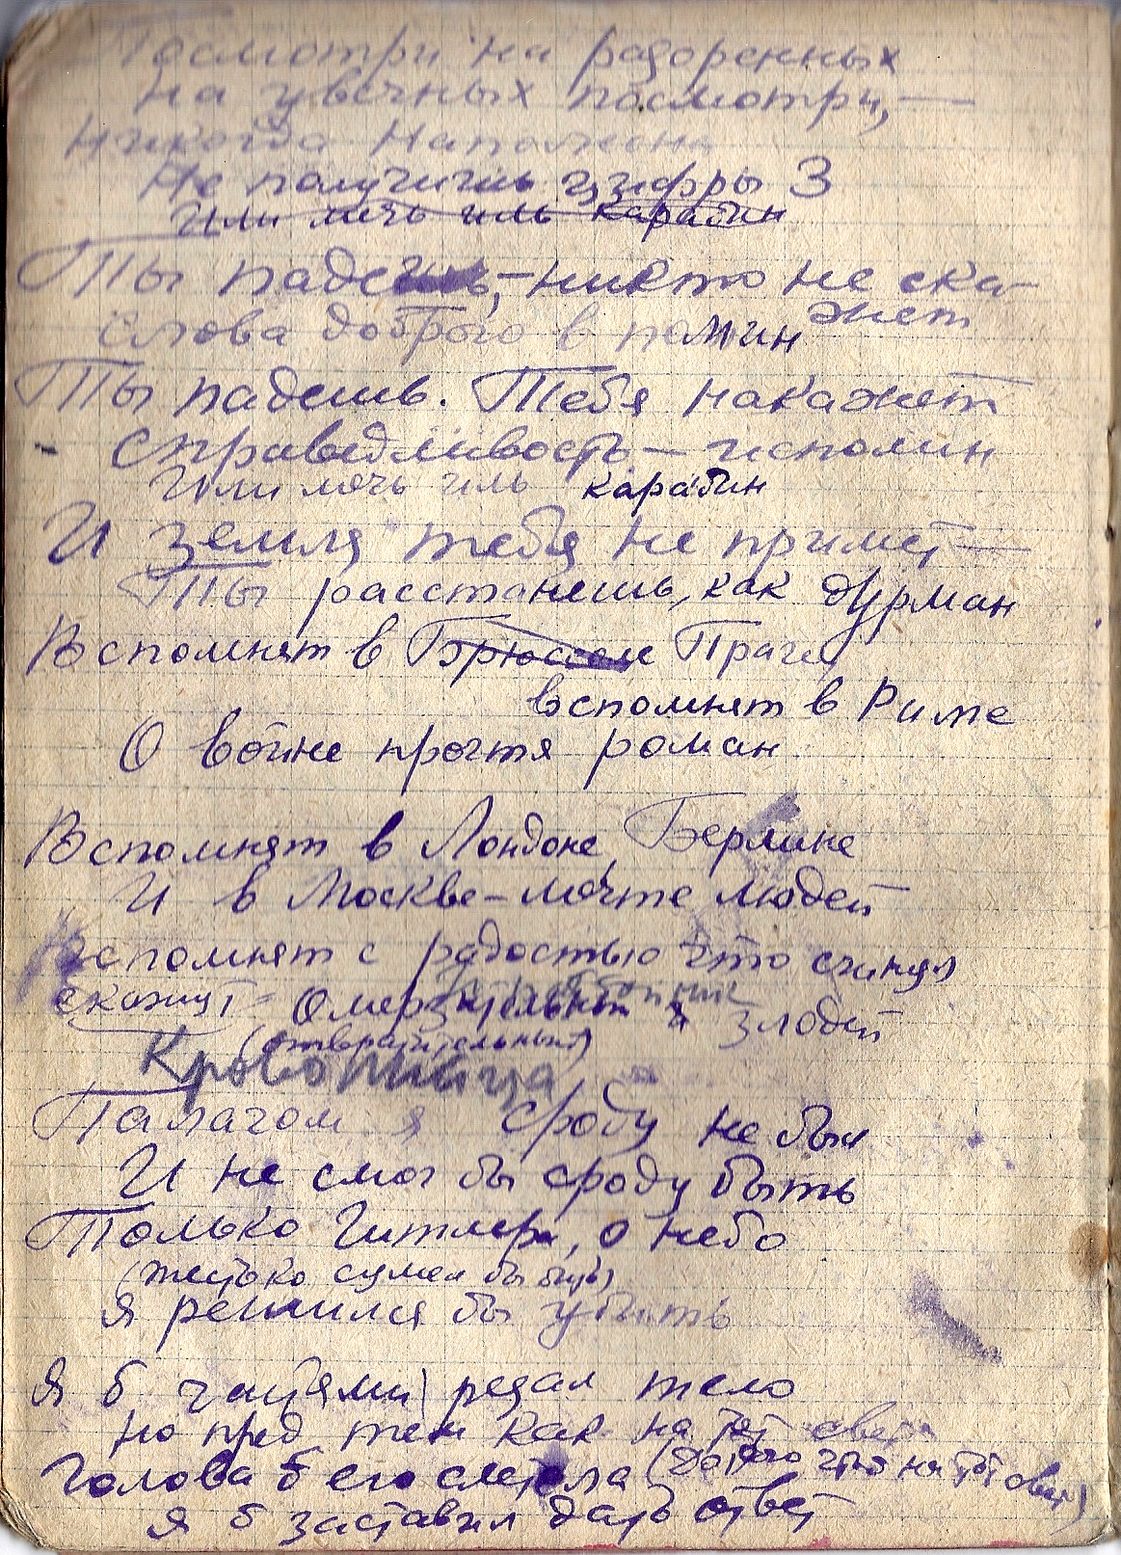 Посмотри на разоренных
На увечных посмотри, —
Никогда Наполеона
Не получишь цифры 3
Или мечь иль карабин
Ты падешь, — никто не ска-
жет
Слова доброго в помин
Ты падешь. Тебя накажет
- Справедливость — исполин
Или мечь иль карабин
И земля тебя не примет —
Ты расстаешь, как дурман
Вспомнят в Брюсселе Праге,
вспомнят в Риме
О войне прочтя роман
Вспомнят в Лондоне, Берлине
И в Москве – мечте людей
Вспомнят с радостью что сгинул
скажут – Омерзительный злодей
(отвратительный)
Кровопийца
Палачом я сроду не был
И не смог бы сроду быть
Только Гитлера, о небо
(жестоко сумел бы бить)
Я решился бы убить
Я б частями резал тело
но пред тем как на тот свет
Голова б его слетела (до того что на тот свет)
Я б заставил дать ответ